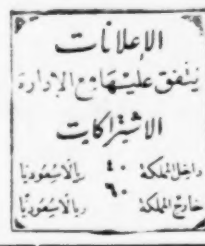 الإعلانات
يتفق عليها مع الإدارة
الاشتراكات
داخل المملكة ٤٠ ريالا سعوديا
خارج المملكة ٦٠ ريالا سعوديا